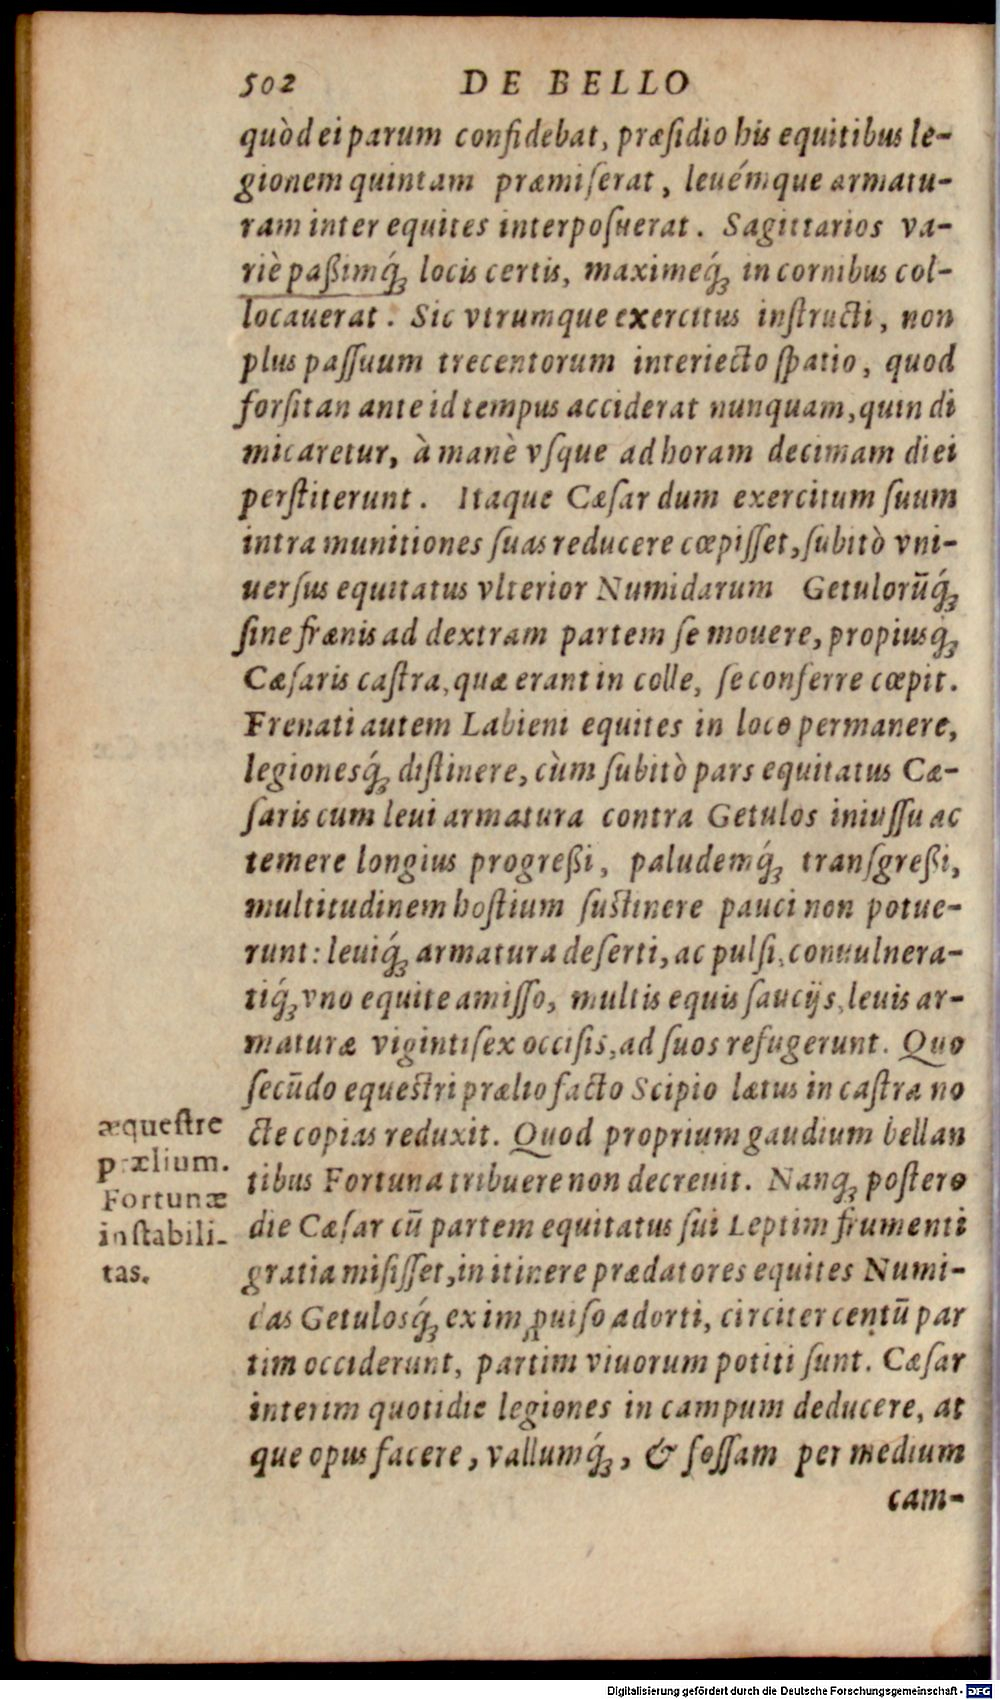 502 DE BELLO
quòd ei parum confidebat, præsidio his equitibus le-
gionem quintam præmiserat, leuémque armatu-
ram inter equites interposuerat. Sagittarios va-
riè paßimq́; locis certis, maximeq́; in cornibus col-
locauerat. Sic vtrumque exercitus instructi, non
plus passuum trecentorum interiecto spatio, quod
forsitan ante id tempus acciderat nunquam, quin di
micaretur, à manè vsque ad horam decimam diei
perstiterunt. Itaque Cæsar dum exercitum suum
intra munitiones suas reducere cœpisset, subitò vni-
uersus equitatus vlterior Numidarum Getulorūq́;
sine frænis ad dextram partem se mouere, propiusq́;
Cæsaris castra, quæ erant in colle, se conferre cœpit.
Frenati autem Labieni equites in loco permanere,
legionesq́; distinere, cùm subitò pars equitatus Cæ-
saris cum leui armatura contra Getulos iniussu ac
temere longius progreßi, paludemq́; transgreßi,
multitudinem hostium sustinere pauci non potue-
runt: leuiq́; armatura deserti, ac pulsi, conuulnera-
tiq́; vno equite amisso, multis equis saucijs, leuis ar-
maturæ vigintisex occisis, ad suos refugerunt. Quo
secūdo equestri prælio facto Scipio lætus in castra no
cte copias reduxit. Quod proprium gaudium bellan
tibus Fortuna tribuere non decreuit. Nanq; postero
die Cæsar cū partem equitatus sui Leptim frumenti
gratia misisset, in itinere prædatores equites Numi-
das Getulosq́; ex improuiso adorti, circiter centū par
tim occiderunt, partim viuorum potiti sunt. Cæsar
interim quotidie legiones in campum deducere, at
que opus facere, vallumq́;, & fossam per medium
cam-
æquestre
prælium.
Fortunæ
instabili-
tas.
Digitalisierung gefördert durch die Deutsche Forschungsgemeinschaft - DFG